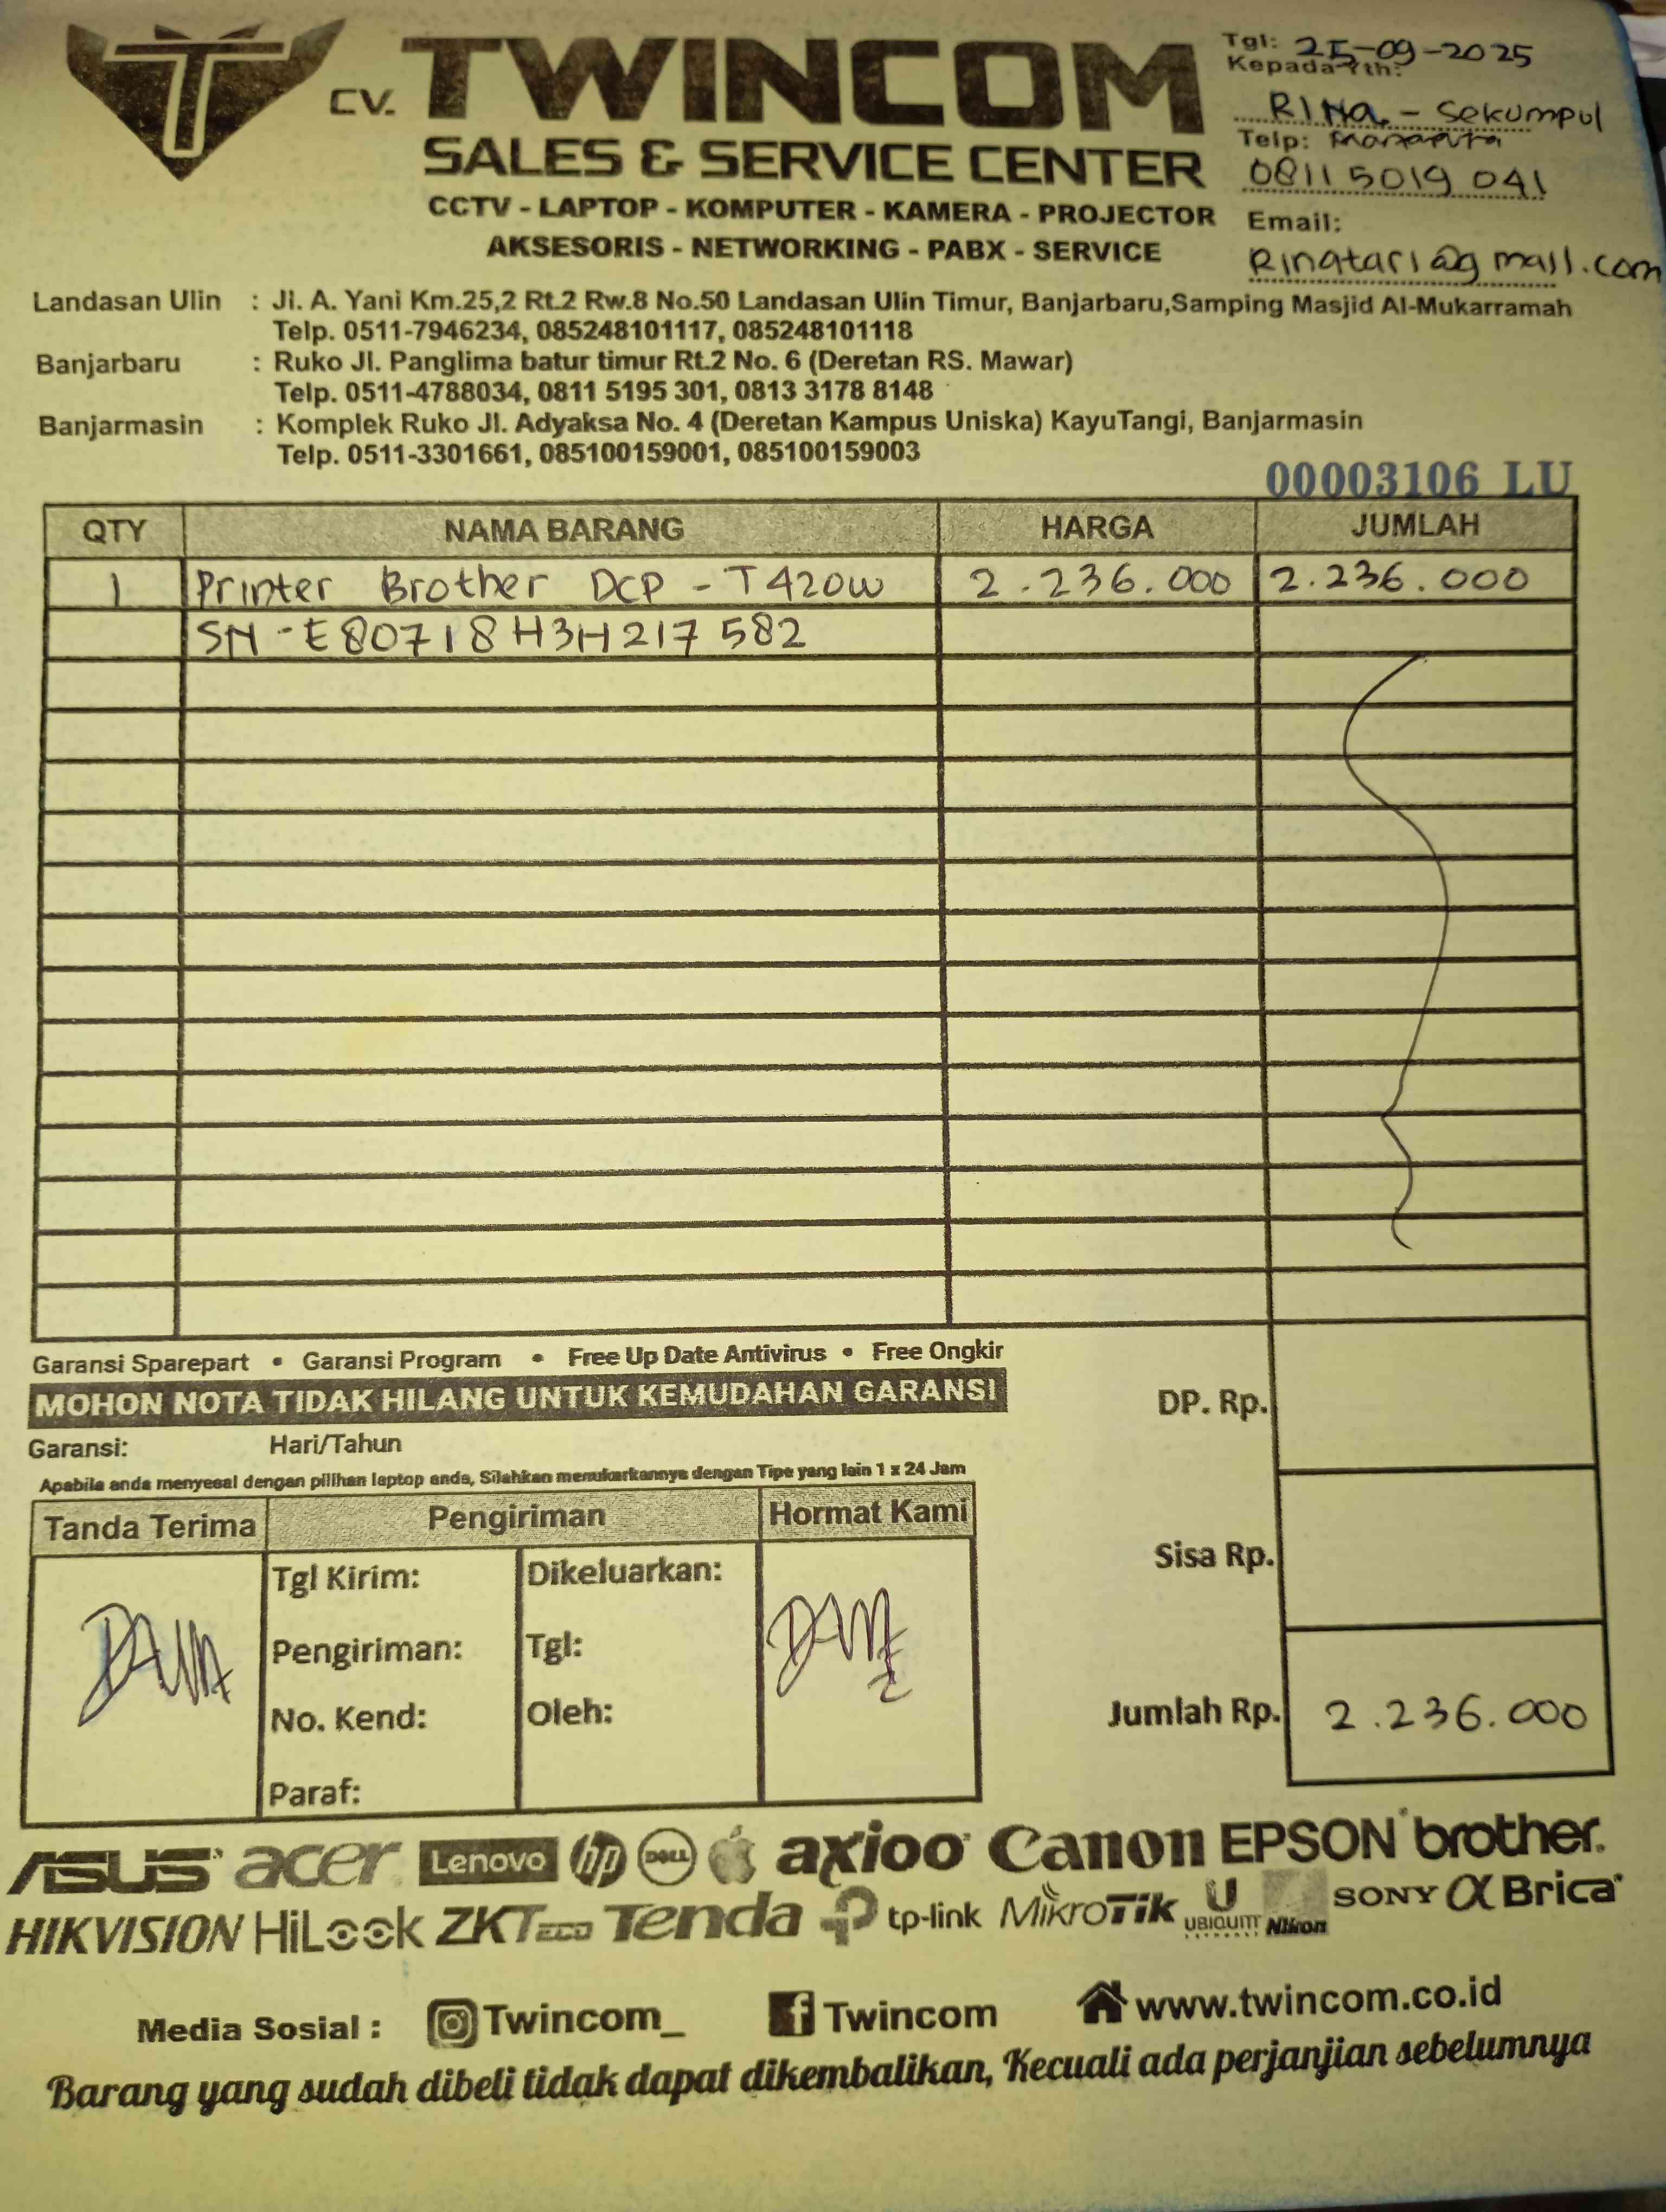 CV. TWINCOM
SALES & SERVICE CENTER
CCTV - LAPTOP - KOMPUTER - KAMERA - PROJECTOR
AKSESORIS - NETWORKING - PABX - SERVICE
Tgl: 25-09-2025
Kepada Yth:
RINA - Sekumpul
Telp:
0811 5019 041
Email:
Rinatari@gmail.com
Landasan Ulin : Jl. A. Yani Km.25,2 Rt.2 Rw.8 No.50 Landasan Ulin Timur, Banjarbaru,Samping Masjid Al-Mukarramah
Telp. 0511-7946234, 085248101117, 085248101118
Banjarbaru : Ruko Jl. Panglima batur timur Rt.2 No. 6 (Deretan RS. Mawar)
Telp. 0511-4788034, 0811 5195 301, 0813 3178 8148
Banjarmasin : Komplek Ruko Jl. Adyaksa No. 4 (Deretan Kampus Uniska) KayuTangi, Banjarmasin
Telp. 0511-3301661, 085100159001, 085100159003
00003106 LU
QTY NAMA BARANG HARGA JUMLAH
1 Printer Brother DCP - T420W 2.236.000 2.236.000
SN - E80718H3H217582
Garansi Sparepart • Garansi Program • Free Up Date Antivirus • Free Ongkir
MOHON NOTA TIDAK HILANG UNTUK KEMUDAHAN GARANSI
Garansi: Hari/Tahun
Apabila anda menyesal dengan pilihan laptop anda, Silahkan menukarkannya dengan Tipe yang lain 1 x 24 Jam
DP. Rp.
Sisa Rp.
Jumlah Rp. 2.236.000
Tanda Terima Pengiriman Hormat Kami
Tgl Kirim: Dikeluarkan:
Pengiriman: Tgl:
No. Kend: Oleh:
Paraf:
ASUS acer Lenovo hp DELL axioo Canon EPSON brother
HIKVISION HiLook ZKTeco Tenda tp-link MikroTik UBIQUITI Nikon SONY α Brica
Media Sosial : Twincom_ Twincom www.twincom.co.id
Barang yang sudah dibeli tidak dapat dikembalikan, Kecuali ada perjanjian sebelumnya